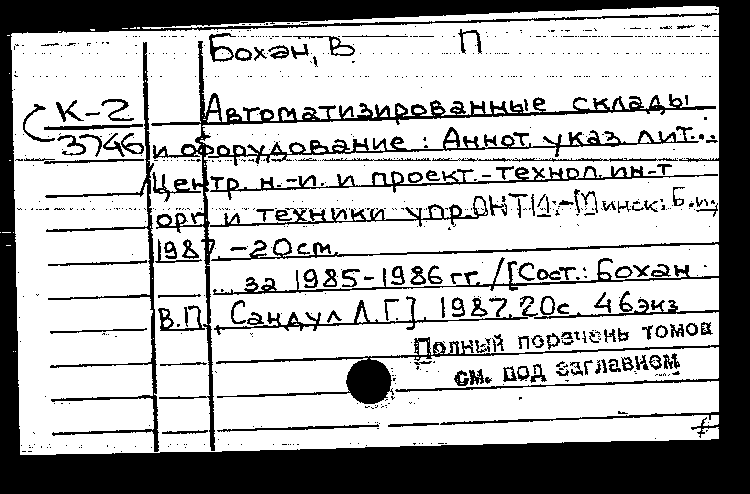 Бохан, В П
К-2 Автоматизированные склады
3746 и оборудование : Аннот. указ. лит...
/Центр. н.-и. и проект.-технол. ин-т
орг. и техники упр. ОНТИ.-Минск: Б.и.,
1987. -20см.
... за 1985-1986 гг. /[Сост.: Бохан
В.П., Сандул Л.Г.]. 1987. 20с. 46экз
Полный перечень томов
см. под заглавием